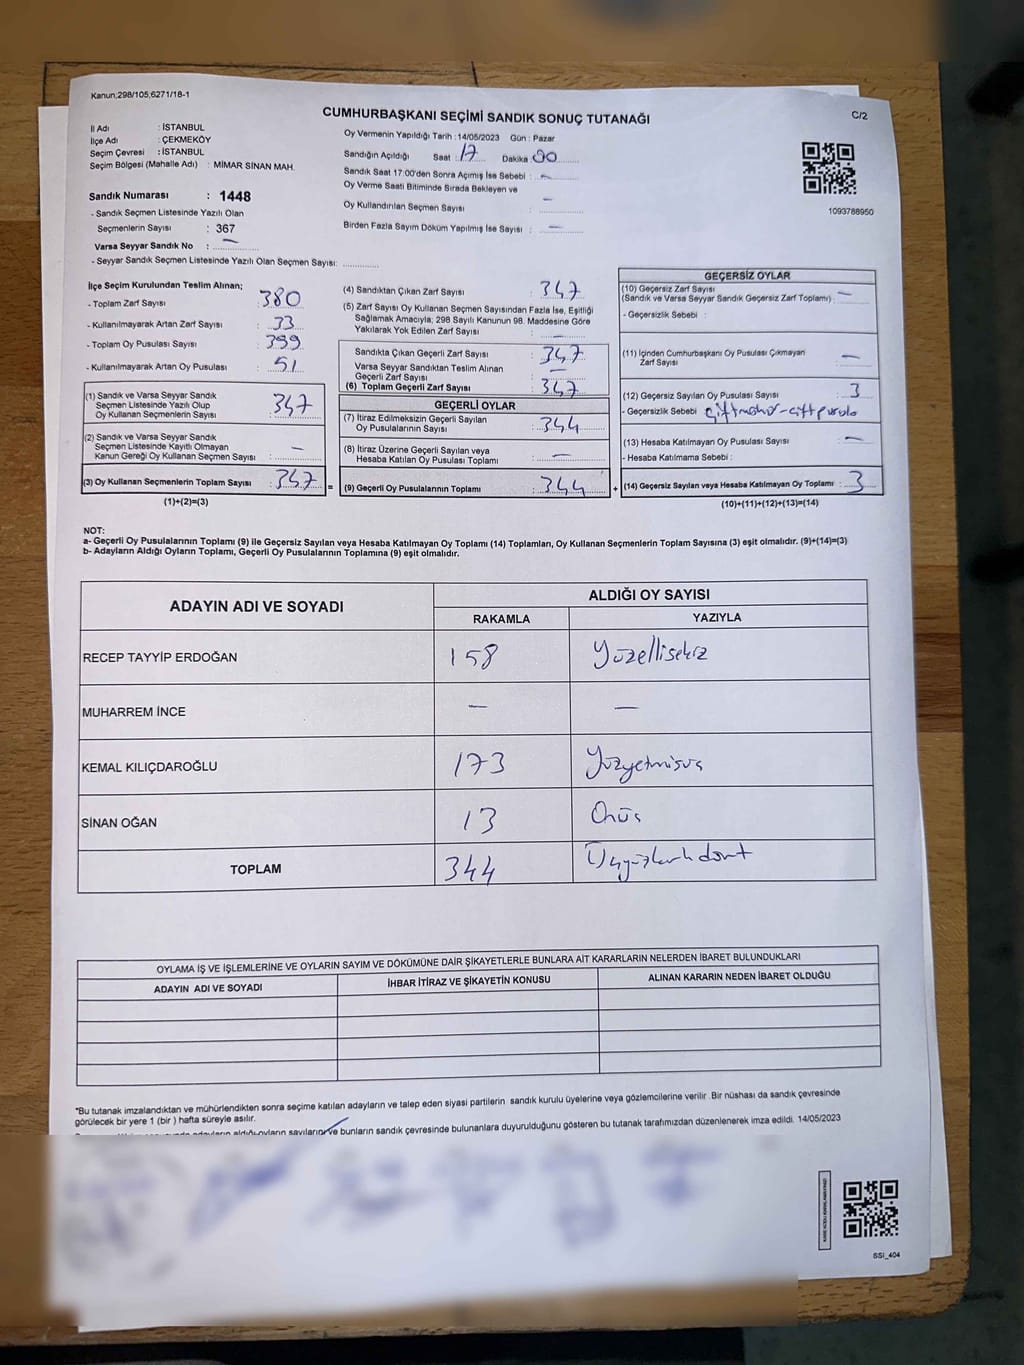 Kanun,298/105,6271/18-1
CUMHURBAŞKANI SEÇİMİ SANDIK SONUÇ TUTANAĞI
C/2
İl Adı : İSTANBUL
İlçe Adı : ÇEKMEKÖY
Seçim Çevresi : İSTANBUL
Seçim Bölgesi (Mahalle Adı) : MİMAR SİNAN MAH.
Sandık Numarası : 1448
- Sandık Seçmen Listesinde Yazılı Olan
Seçmenlerin Sayısı : 367
Varsa Seyyar Sandık No : —
- Seyyar Sandık Seçmen Listesinde Yazılı Olan Seçmen Sayısı:
Oy Vermenin Yapıldığı Tarih :14/05/2023 Gün : Pazar
Sandığın Açıldığı Saat : 17 Dakika : 00
Sandık Saat 17:00'den Sonra Açımış İse Sebebi : —
Oy Verme Saati Bitiminde Sırada Bekleyen ve
Oy Kullandırılan Seçmen Sayısı : —
Birden Fazla Sayım Döküm Yapılmış İse Sayısı : —
1093788950
İlçe Seçim Kurulundan Teslim Alınan;
- Toplam Zarf Sayısı : 380
- Kullanılmayarak Artan Zarf Sayısı : 33
- Toplam Oy Pusulası Sayısı : 399
- Kullanılmayarak Artan Oy Pusulası : 51
(1) Sandık ve Varsa Seyyar Sandık
Seçmen Listesinde Yazılı Olup
Oy Kullanan Seçmenlerin Sayısı : 347
(2) Sandık ve Varsa Seyyar Sandık
Seçmen Listesinde Kayıtlı Olmayan
Kanun Gereği Oy Kullanan Seçmen Sayısı : —
(3) Oy Kullanan Seçmenlerin Toplam Sayısı : 347
(1)+(2)=(3)
(4) Sandıktan Çıkan Zarf Sayısı : 347
(5) Zarf Sayısı Oy Kullanan Seçmen Sayısından Fazla İse, Eşitliği
Sağlamak Amacıyla; 298 Sayılı Kanunun 98. Maddesine Göre
Yakılarak Yok Edilen Zarf Sayısı : —
Sandıkta Çıkan Geçerli Zarf Sayısı : 347
Varsa Seyyar Sandıktan Teslim Alınan
Geçerli Zarf Sayısı : —
(6) Toplam Geçerli Zarf Sayısı : 347
GEÇERLİ OYLAR
(7) İtiraz Edilmeksizin Geçerli Sayılan
Oy Pusulalarının Sayısı : 344
(8) İtiraz Üzerine Geçerli Sayılan veya
Hesaba Katılan Oy Pusulası Toplamı : —
= (9) Geçerli Oy Pusulalarının Toplamı : 344
GEÇERSİZ OYLAR
(10) Geçersiz Zarf Sayısı : —
(Sandık ve Varsa Seyyar Sandık Geçersiz Zarf Toplamı)
- Geçersizlik Sebebi :
(11) İçinden Cumhurbaşkanı Oy Pusulası Çıkmayan
Zarf Sayısı : —
(12) Geçersiz Sayılan Oy Pusulası Sayısı : 3
- Geçersizlik Sebebi : çiftmühür-çiftpusula
(13) Hesaba Katılmayan Oy Pusulası Sayısı : —
- Hesaba Katılmama Sebebi :
+ (14) Geçersiz Sayılan veya Hesaba Katılmayan Oy Toplamı : 3
(10)+(11)+(12)+(13)=(14)
NOT:
a- Geçerli Oy Pusulalarının Toplamı (9) ile Geçersiz Sayılan veya Hesaba Katılmayan Oy Toplamı (14) Toplamları, Oy Kullanan Seçmenlerin Toplam Sayısına (3) eşit olmalıdır. (9)+(14)=(3)
b- Adayların Aldığı Oyların Toplamı, Geçerli Oy Pusulalarının Toplamına (9) eşit olmalıdır.
ADAYIN ADI VE SOYADI
ALDIĞI OY SAYISI
RAKAMLA YAZIYLA
RECEP TAYYİP ERDOĞAN 158 Yüzellisekiz
MUHARREM İNCE — —
KEMAL KILIÇDAROĞLU 173 Yüzyetmişüç
SİNAN OĞAN 13 Onüç
TOPLAM 344 Üçyüzkırkdört
OYLAMA İŞ VE İŞLEMLERİNE VE OYLARIN SAYIM VE DÖKÜMÜNE DAİR ŞİKAYETLERLE BUNLARA AİT KARARLARIN NELERDEN İBARET BULUNDUKLARI
ADAYIN ADI VE SOYADI İHBAR İTİRAZ VE ŞİKAYETİN KONUSU ALINAN KARARIN NEDEN İBARET OLDUĞU
*Bu tutanak imzalandıktan ve mühürlendikten sonra seçime katılan adayların ve talep eden siyasi partilerin sandık kurulu üyelerine veya gözlemcilerine verilir .Bir nüshası da sandık çevresinde
görülecek bir yere 1 (bir ) hafta süreyle asılır.
adayların aldığı oyların sayılarını ve bunların sandık çevresinde bulunanlara duyurulduğunu gösteren bu tutanak tarafımızdan düzenlenerek imza edildi. 14/05/2023
SSİ_404